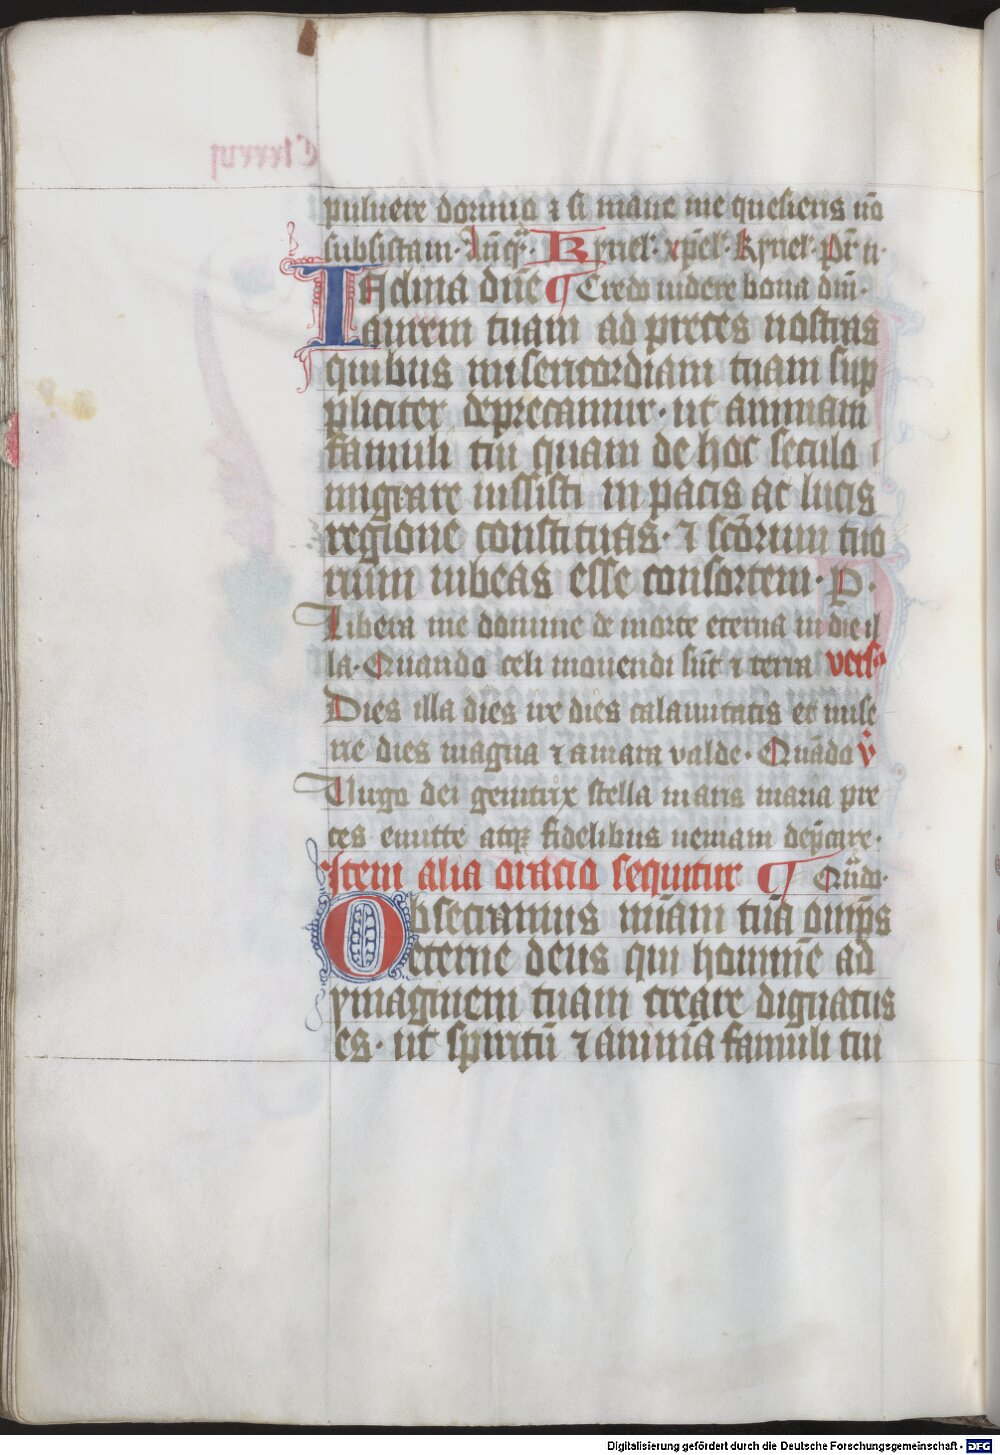 puluere dormio ⁊ si mane me quesieris nō
subsistam · Anq̄ᷓ · Kyriel · xp̄el · Kyriel · Pr̄ n ·
Inclina dn̄e ¶ Credo uidere bona dn̄i ·
aurem tuam ad preces nostras
quibus misericordiam tuam sup
pliciter deprecamur · ut animam
famuli tui quam de hoc seculo
migrare iussisti in pacis ac lucis
regione constituas · ⁊ sc̄orum tuo
rum iubeas esse consortem · P ·
Libera me domine de morte eterna in die il
la · Quando celi mouendi sūt ⁊ terra vers᷒
Dies illa dies ire dies calamitatis et mise
rie dies magna ⁊ amara valde · Quādo v̊
Uirgo dei genitrix stella maris maria pre
ces emitte atqꝫ fidelibus ueniam dep̄care ·
Item alia oracio sequitur ¶ Quādo ·
Obsecramus mīam tuā omīps
eterne deus qui hominē ad
ymaginem tuam creare dignatus
es · ut spiritū ⁊ animā famuli tui
Digitalisierung gefördert durch die Deutsche Forschungsgemeinschaft - DFG